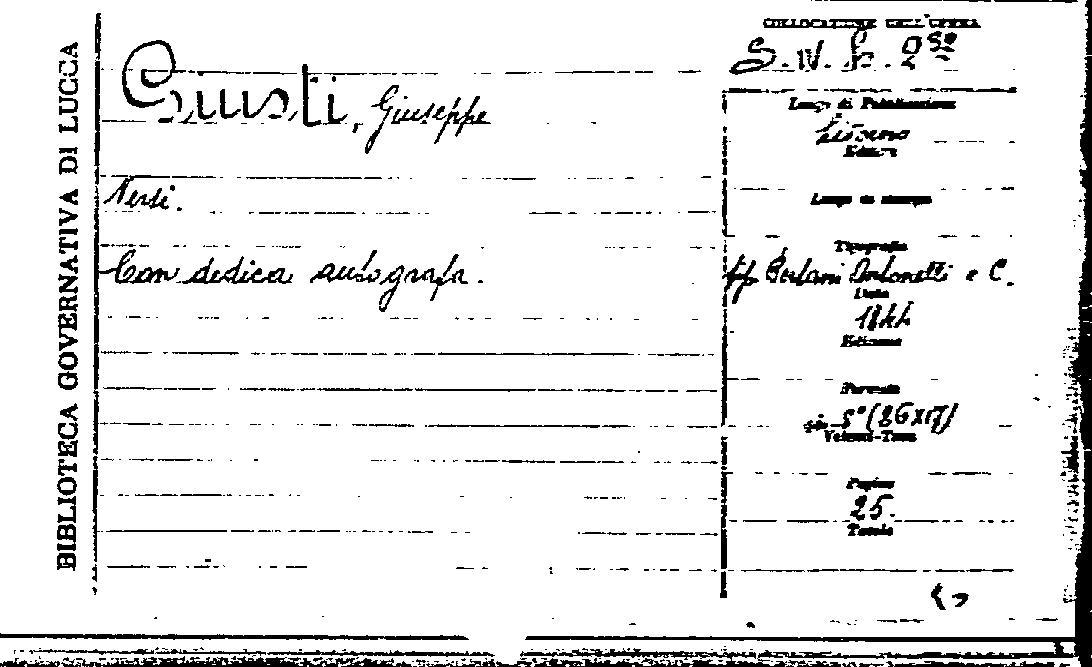 BIBLIOTECA GOVERNATIVA DI LUCCA
Giusti, Giuseppe
Versi.
Con dedica autografa.
COLLOCAZIONE DELL'OPERA
Luogo di Pubblicazione
Livorno
Editore
Luogo di stampa
Tipografia
Bertani Antonelli e C.
Data
1844
Edizione
Formato
in 8° (26x17)
Volumi-Tomi
Pagine
25.
Tavole